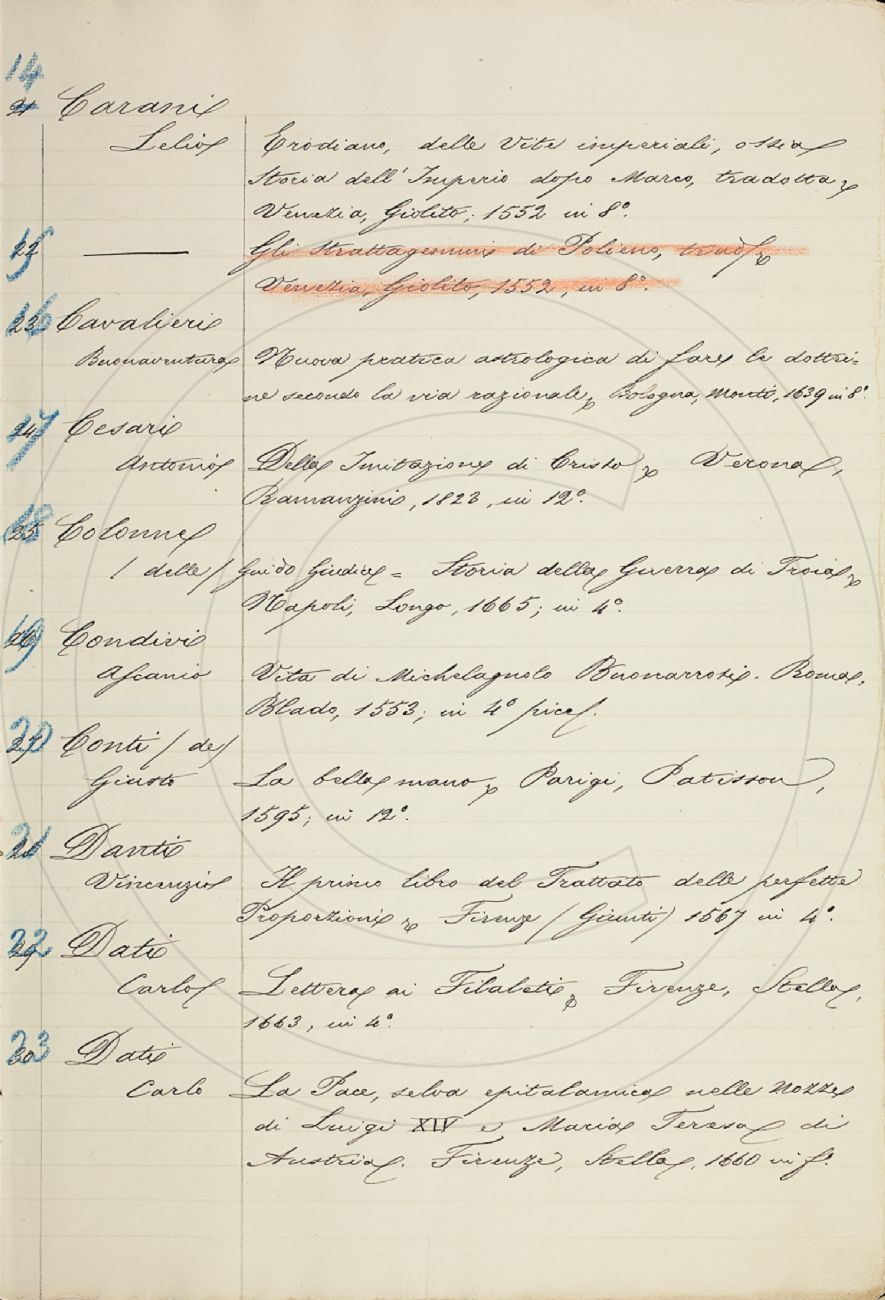 14
21 Carani
Lelio Erodiano, delle Vite imperiali, ossia
Storia dell' Imperio dopo Marco, tradotta &
Venezia, Giolito; 1552 in 8°.
15
22 —— Gli Strattagemmi di Polieno, trad. &
Venezia, Giolito, 1552, in 8°.
16
23 Cavalieri
Buonaventura Nuova pratica astrologica di fare le dottri=
ne secondo la via razionale, & Bologna, Monti, 1639 in 8°.
17
24 Cesari
Antonio Della Imitazione di Cristo & Verona,
Ramanzini, 1823, in 12°.
18
25 Colonne
/ delle / Guido Giudice = Storia della Guerra di Troia &
Napoli, Longo, 1665; in 4°.
19
26 Condivi
Ascanio Vita di Michelagnolo Buonarroti. Roma,
Blado, 1553; in 4° picc.
20
27 Conti / de /
Giusto La bella mano & Parigi, Patisson,
1595; in 12°.
21
28 Danti
Vincenzio Il primo libro del Trattato delle perfette
Proporzioni & Firenze / Giunti / 1567 in 4°.
22
29 Dati
Carlo Lettera ai Filaleti & Firenze, Stella,
1663, in 4°.
23
30 Dati
Carlo La Pace, selva epitalamica nelle nozze
di Luigi XIV e Maria Teresa di
Austria. Firenze, Stella, 1660 in f°.